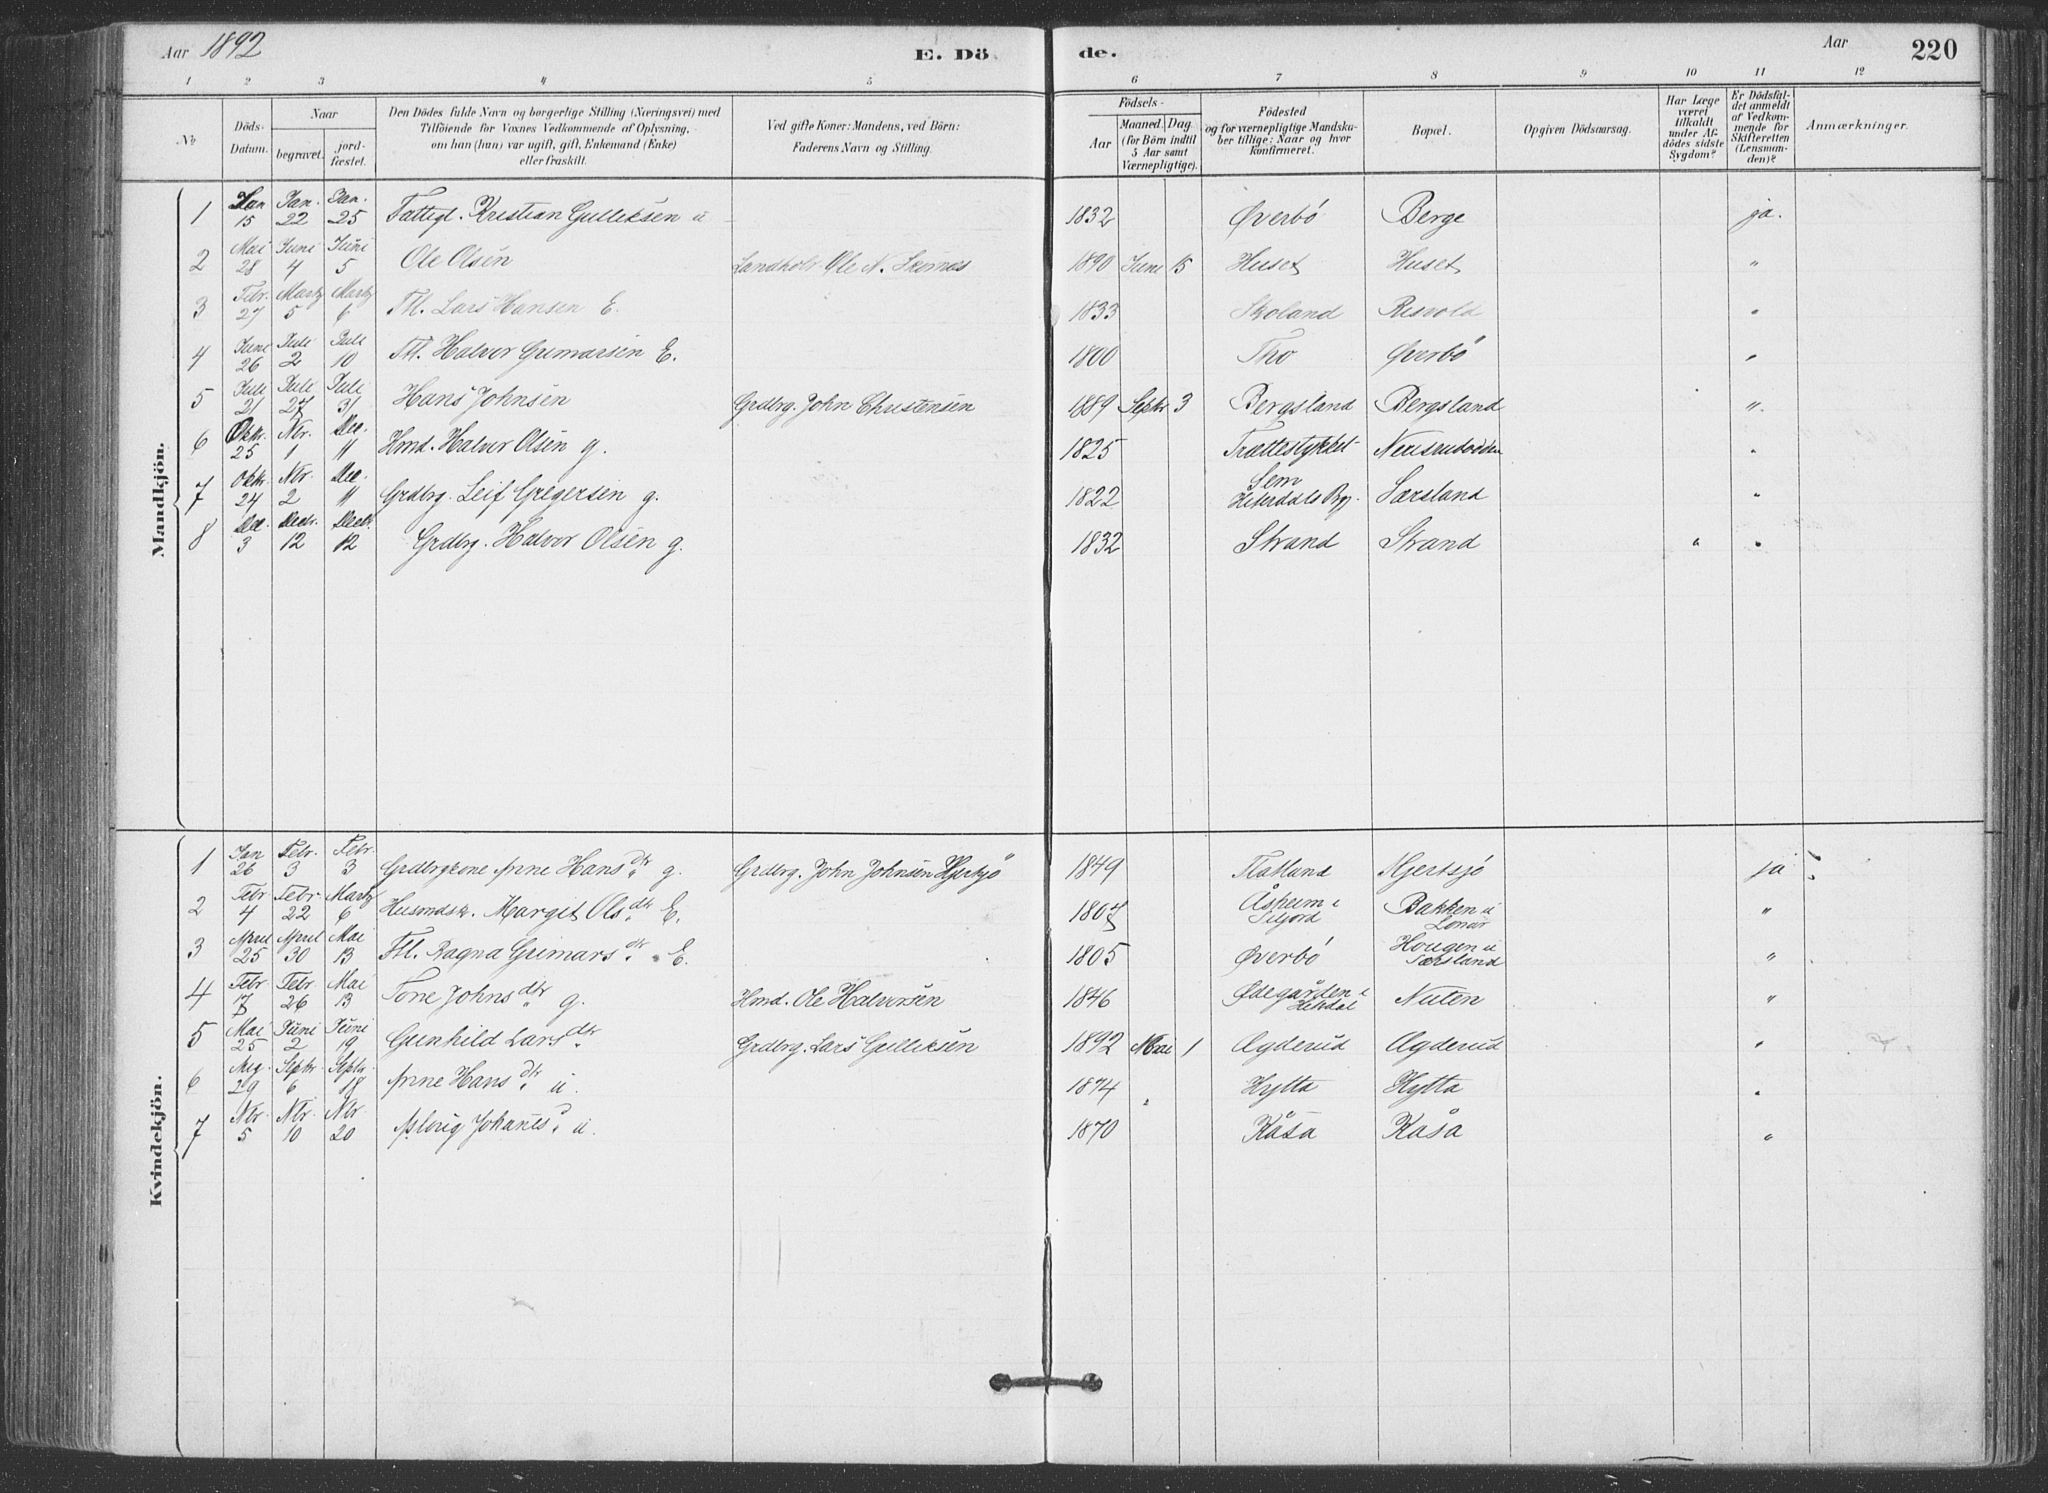 Aar 1892 E. Döde. Aar 220
1 2 3 4 5 6 7 8 9 10 11 12
No Döds-Datum. Naar begravet. jordfæstet. Den Dödes fulde Navn og borgerlige Stilling (Næringsvei) med Tilföiende för Voxnes Vedkommende af Oplysning, om han (hun) var ugift, gift, Enkemand (Enke) eller fraskilt. Ved gifte Koner: Mandens, ved Börn: Faderens Navn og Stilling. Födsels- Aar Maaned. Dag (for Börn indtil 5 Aar samt Værnepligtige). Födested og for værnepligtige Mandskaber tillige: Naar og hvor konfirmeret. Bopæl. Opgiven Dödsaarsag. Har Læge været tilkaldt under Afdödes sidste Sygdom? Er Dödsfaldet anmeldt af Vedkommende for Skifteretten (Lensmanden)? Anmærkninger.
Mandkjön.
1 Jan 15 Jan. 22 Jan. 25 Fattigl. Kristian Gulliksen u 1832 Øverbö Berge ja.
2 Mai 28 Juni 4 Juni 5 Ole Olsen Ole N. 1890 Juni 15 Huset Huset "
3 Febr. 27 Marts 5 Marts 6 Fl. Lars Hansen E. 1833 Skoland "
4 Juni 26 Juli 2 Juli 10 Fl. Halvor Grimarsen E. 1800 Tho Øverbö "
5 Juli 21 Juli 27 Juli 31 Hans Johnsen Grdbrg. John Christensen 1889 Septr 3 Bergsland Bergsland "
6 Oktr. 25 Nbr. 1 Dec. 11 Hmd. Halvor Olsen g. 1825 Trættestykket "
7 Oktr. 24 Nbr. 2 Dec. 11 Grdbrg. Leif Grigersen g. 1822 Sem Særsland "
8 Dec. 3 Decbr. 12 Decbr. 12 Grdbrg. Halvor Olsen g. 1832 Strand Strand " "
Kvindekjön.
1 Jan 26 Febr. 3 Febr. 3 Grdbrgkone Anne Hansdtr g. Grdbrg. John Johnsen Hjertsjö 1849 Flatland Hjertsjø ja
2 Febr 4 Febr. 22 Marts 6 Margit Olsdtr E. 1807 Åsheim i Siljord Bakken u "
3 April 25 April 30 Mai 13 Fl. Ragna Grimarsdtr E. 1805 Øverbö Hougen u Særsland "
4 Febr 17 Febr. 26 Mai 13 Tone Johnsdtr g. Hmd. Ole Halvorsen 1846 Ødegården i Nuten "
5 Mai 25 Juni 2 Juni 19 Gunhild Larsdtr Grdbrg. Lars Gulliksen 1892 Mai 1 Ægderud Ægderud "
6 Aug. 29 Septr. 6 Septr. 18 Anne Hansdtr u. 1874 Hytta Hytta "
7 Nbr. 5 Nbr. 10 Nbr. 20 Aslaug Johanesd. u. 1870 Kåsa Kåsa "